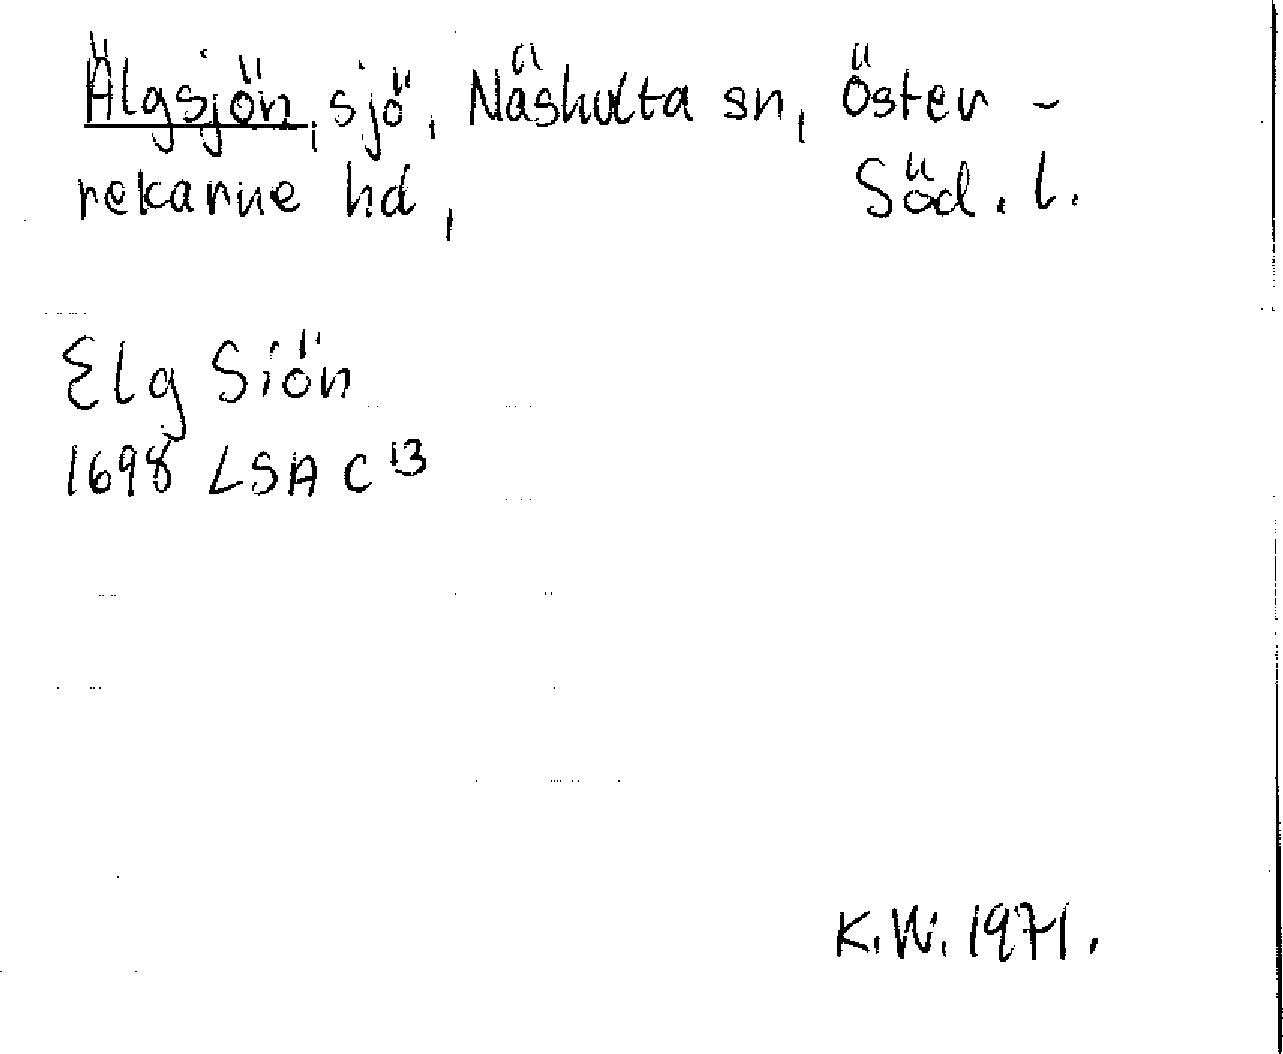 Älgsjön, sjö, Näshulta sn, Öster-
rekarne hd, Söd. l.
Elg Siön
1698 LSA C 13
K.W. 1971.